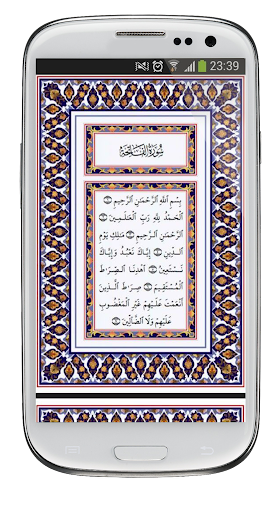 23:39
سُورَةُ الفَاتِحَةِ
بِسْمِ ٱللَّهِ ٱلرَّحْمَٰنِ ٱلرَّحِيمِ ۝
ٱلْحَمْدُ لِلَّهِ رَبِّ ٱلْعَٰلَمِينَ ۝
ٱلرَّحْمَٰنِ ٱلرَّحِيمِ ۝ مَٰلِكِ يَوْمِ
ٱلدِّينِ ۝ إِيَّاكَ نَعْبُدُ وَإِيَّاكَ
نَسْتَعِينُ ۝ ٱهْدِنَا ٱلصِّرَٰطَ
ٱلْمُسْتَقِيمَ ۝ صِرَٰطَ ٱلَّذِينَ
أَنْعَمْتَ عَلَيْهِمْ غَيْرِ ٱلْمَغْضُوبِ
عَلَيْهِمْ وَلَا ٱلضَّآلِّينَ ۝